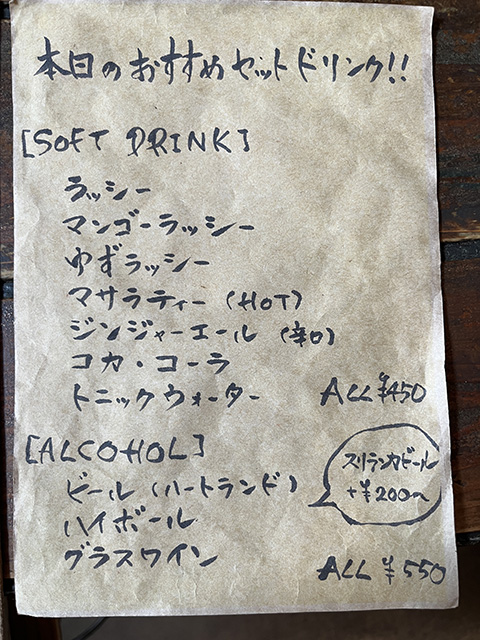 本日のおすすめセットドリンク!!
[SOFT DRINK]
ラッシー
マンゴーラッシー
ゆずラッシー
マサラティー (HOT)
ジンジャーエール (辛口)
コカ・コーラ
トニックウォーター
ALL ¥450
[ALCOHOL]
ビール (ハートランド)
スリランカビール
+¥200〜
ハイボール
グラスワイン
ALL ¥550